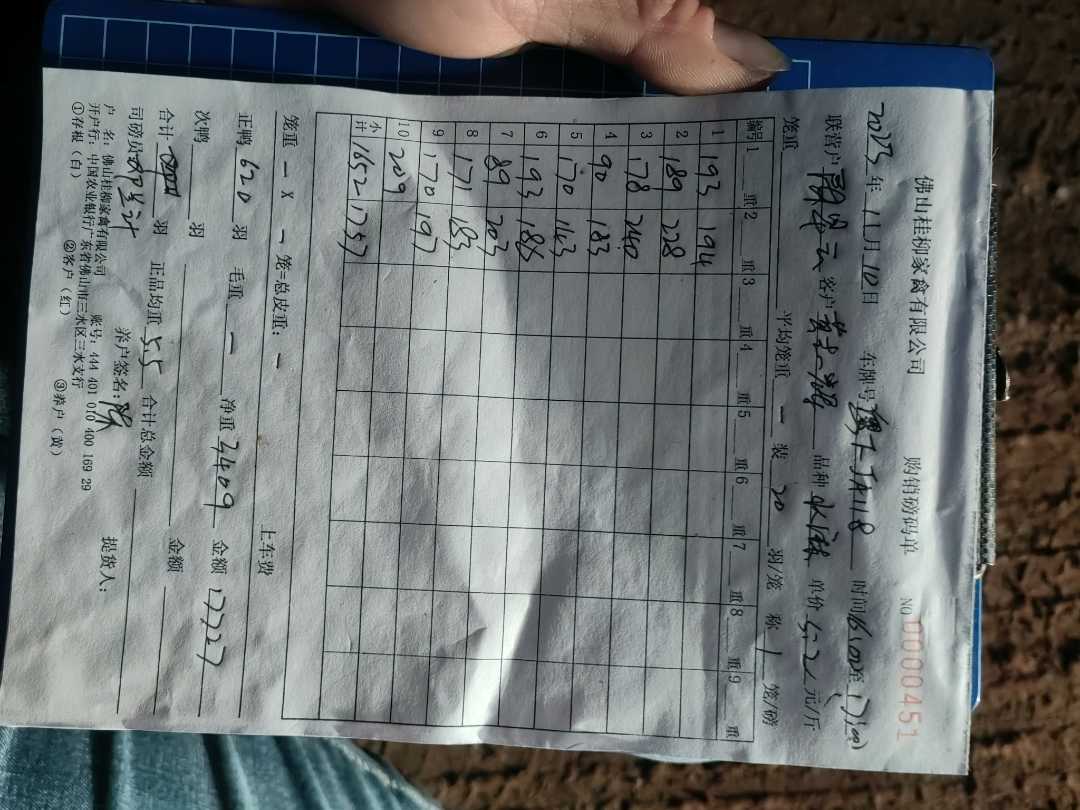 佛山桂柳家禽有限公司 购销磅码单 NO 0000451
2023年 11月 10日 车牌号 JA118 时间 16:00至17:00
联营户 客户 品种 单价 5.2 元/斤
笼重 平均笼重 一 装 20 羽/笼 称 1 笼/磅
编号 1 重 2 重 3 重 4 重 5 重 6 重 7 重 8 重 9 重
1 193 194
2 189 228
3 178 240
4 90 183
5 170 143
6 193 186
7 89 203
8 171 183
9 170 197
10 209
小计 1652 1757
笼重 一 X 一 笼=总皮重: 一 上车费
正鸭 620 羽 毛重 一 净重 3409 金额 17727
次鸭 羽 金额
合计 羽 正品均重 5.5 合计总金额
司磅员 养户签名: 陈 提货人:
户 名: 佛山桂柳家禽有限公司 账号: 444 401 010 400 169 29
开户行: 中国农业银行广东省佛山市三水区三水支行
①存根(白) ②客户(红) ③养户(黄)